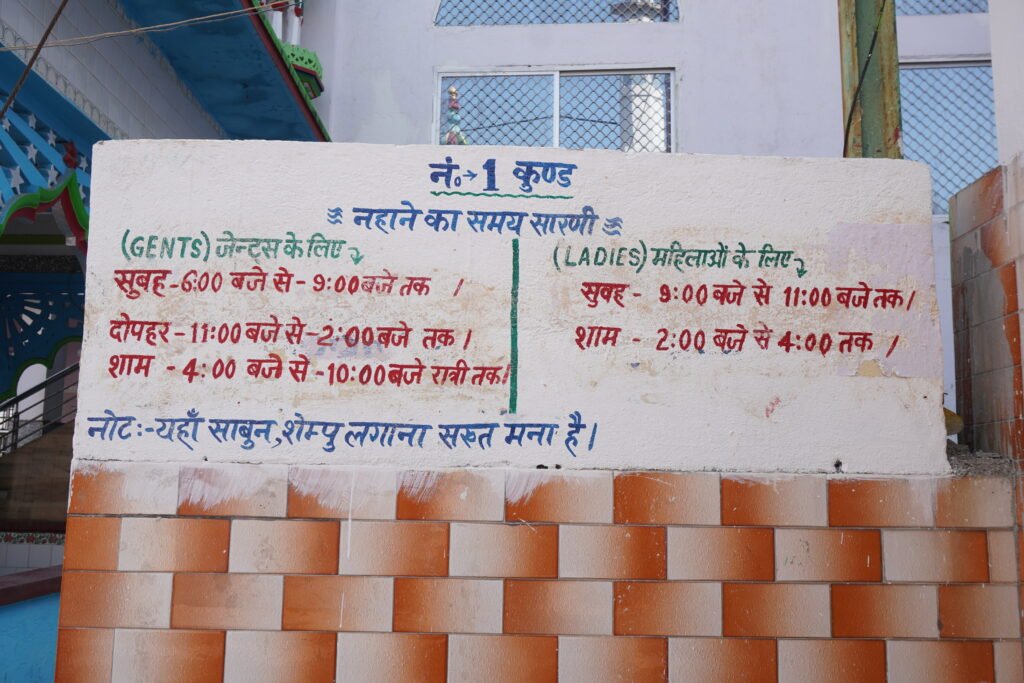 नं॰→1 कुण्ड
नहाने का समय सारणी
(GENTS) जेन्ट्स के लिए
सुबह - 6:00 बजे से - 9:00 बजे तक ।
दोपहर - 11:00 बजे से - 2:00 बजे तक ।
शाम - 4:00 बजे से - 10:00 बजे रात्री तक।
(LADIES) महिलाओं के लिए
सुबह - 9:00 बजे से 11:00 बजे तक।
शाम - 2:00 बजे से 4:00 तक ।
नोट:-यहाँ साबुन,शेम्पु लगाना सख्त मना है।